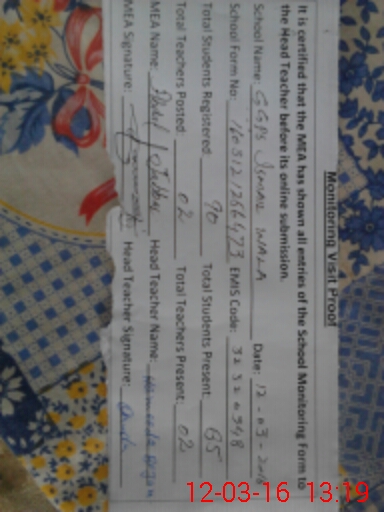 Monitoring Visit Proof
It is certified that the MEA has shown all entries of the School Monitoring Form to
the Head Teacher before its online submission.
School Name: GGPS Ismail Wala Date: 12-03-2016
School Form No: EMIS Code:
Total Students Registered: 90 Total Students Present: 65
Total Teachers Posted: 02 Total Teachers Present: 02
MEA Name: Head Teacher Name:
MEA Signature: Head Teacher Signature:
12-03-16 13:19